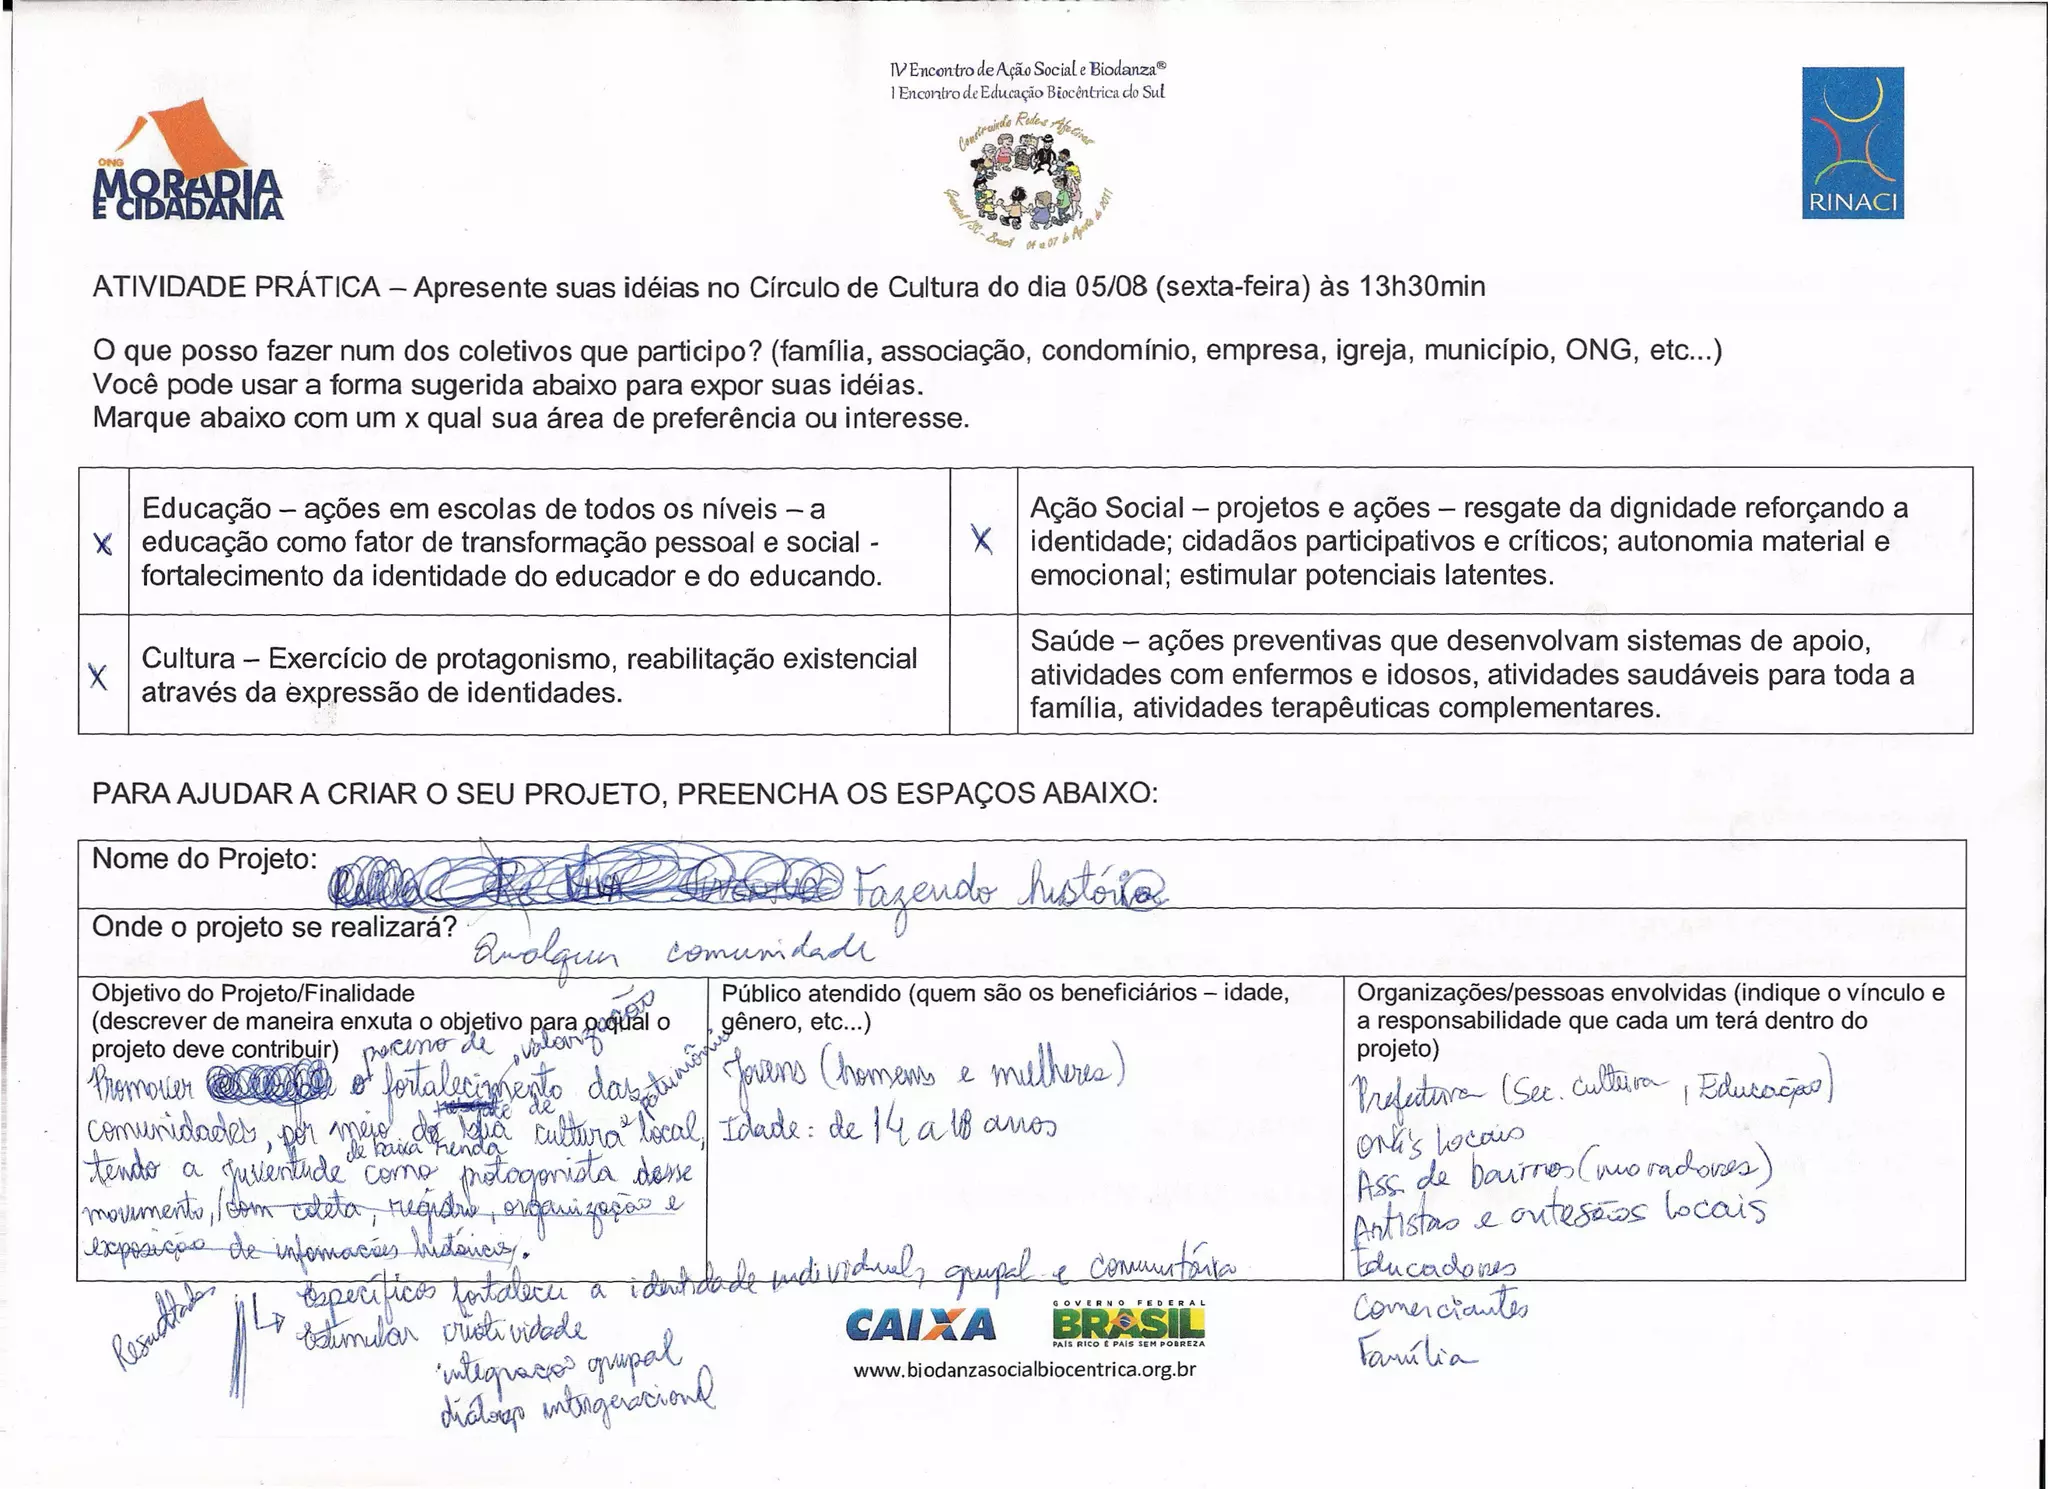 IV Encontro de Ação Social e Biodanza®
I Encontro de Educação Biocêntrica do Sul
Construindo Redes Afetivas
/SC - Brasil 04 a 07 de Agosto de 2011
ONG
MORADIA
E CIDADANIA
RINACI
ATIVIDADE PRÁTICA – Apresente suas idéias no Círculo de Cultura do dia 05/08 (sexta-feira) às 13h30min
O que posso fazer num dos coletivos que participo? (família, associação, condomínio, empresa, igreja, município, ONG, etc...)
Você pode usar a forma sugerida abaixo para expor suas idéias.
Marque abaixo com um x qual sua área de preferência ou interesse.
X
Educação – ações em escolas de todos os níveis – a
educação como fator de transformação pessoal e social -
fortalecimento da identidade do educador e do educando.
X
Ação Social – projetos e ações – resgate da dignidade reforçando a
identidade; cidadãos participativos e críticos; autonomia material e
emocional; estimular potenciais latentes.
X
Cultura – Exercício de protagonismo, reabilitação existencial
através da expressão de identidades.
Saúde – ações preventivas que desenvolvam sistemas de apoio,
atividades com enfermos e idosos, atividades saudáveis para toda a
família, atividades terapêuticas complementares.
PARA AJUDAR A CRIAR O SEU PROJETO, PREENCHA OS ESPAÇOS ABAIXO:
Nome do Projeto: Fazendo história
Onde o projeto se realizará? Qualquer comunidade
Objetivo do Projeto/Finalidade
(descrever de maneira enxuta o objetivo para o qual o
projeto deve contribuir) processo de valorização
Promover o fortalecimento das
resgate de patrimônio
comunidades, por meio da sua cultura e local,
de baixa renda
tendo a juventude como protagonista desse
movimento, com coleta, registro, organização e
exposição de informações históricas.
Público atendido (quem são os beneficiários – idade,
gênero, etc...)
Jovens (homens e mulheres)
Idade: de 14 a 18 anos
Organizações/pessoas envolvidas (indique o vínculo e
a responsabilidade que cada um terá dentro do
projeto)
Prefeitura (Sec. Cultura, Educação)
ONG's locais
Ass. de bairros (moradores)
Artistas e artesãos locais
Educadores
Comerciantes
Família
Resultados
Específicos fortalecer a identidade individual, grupal e comunitária
Estimular criatividade
integração grupal
diálogo intergeracional
CAIXA
GOVERNO FEDERAL
BRASIL
PAÍS RICO É PAÍS SEM POBREZA
www.biodanzasocialbiocentrica.org.br